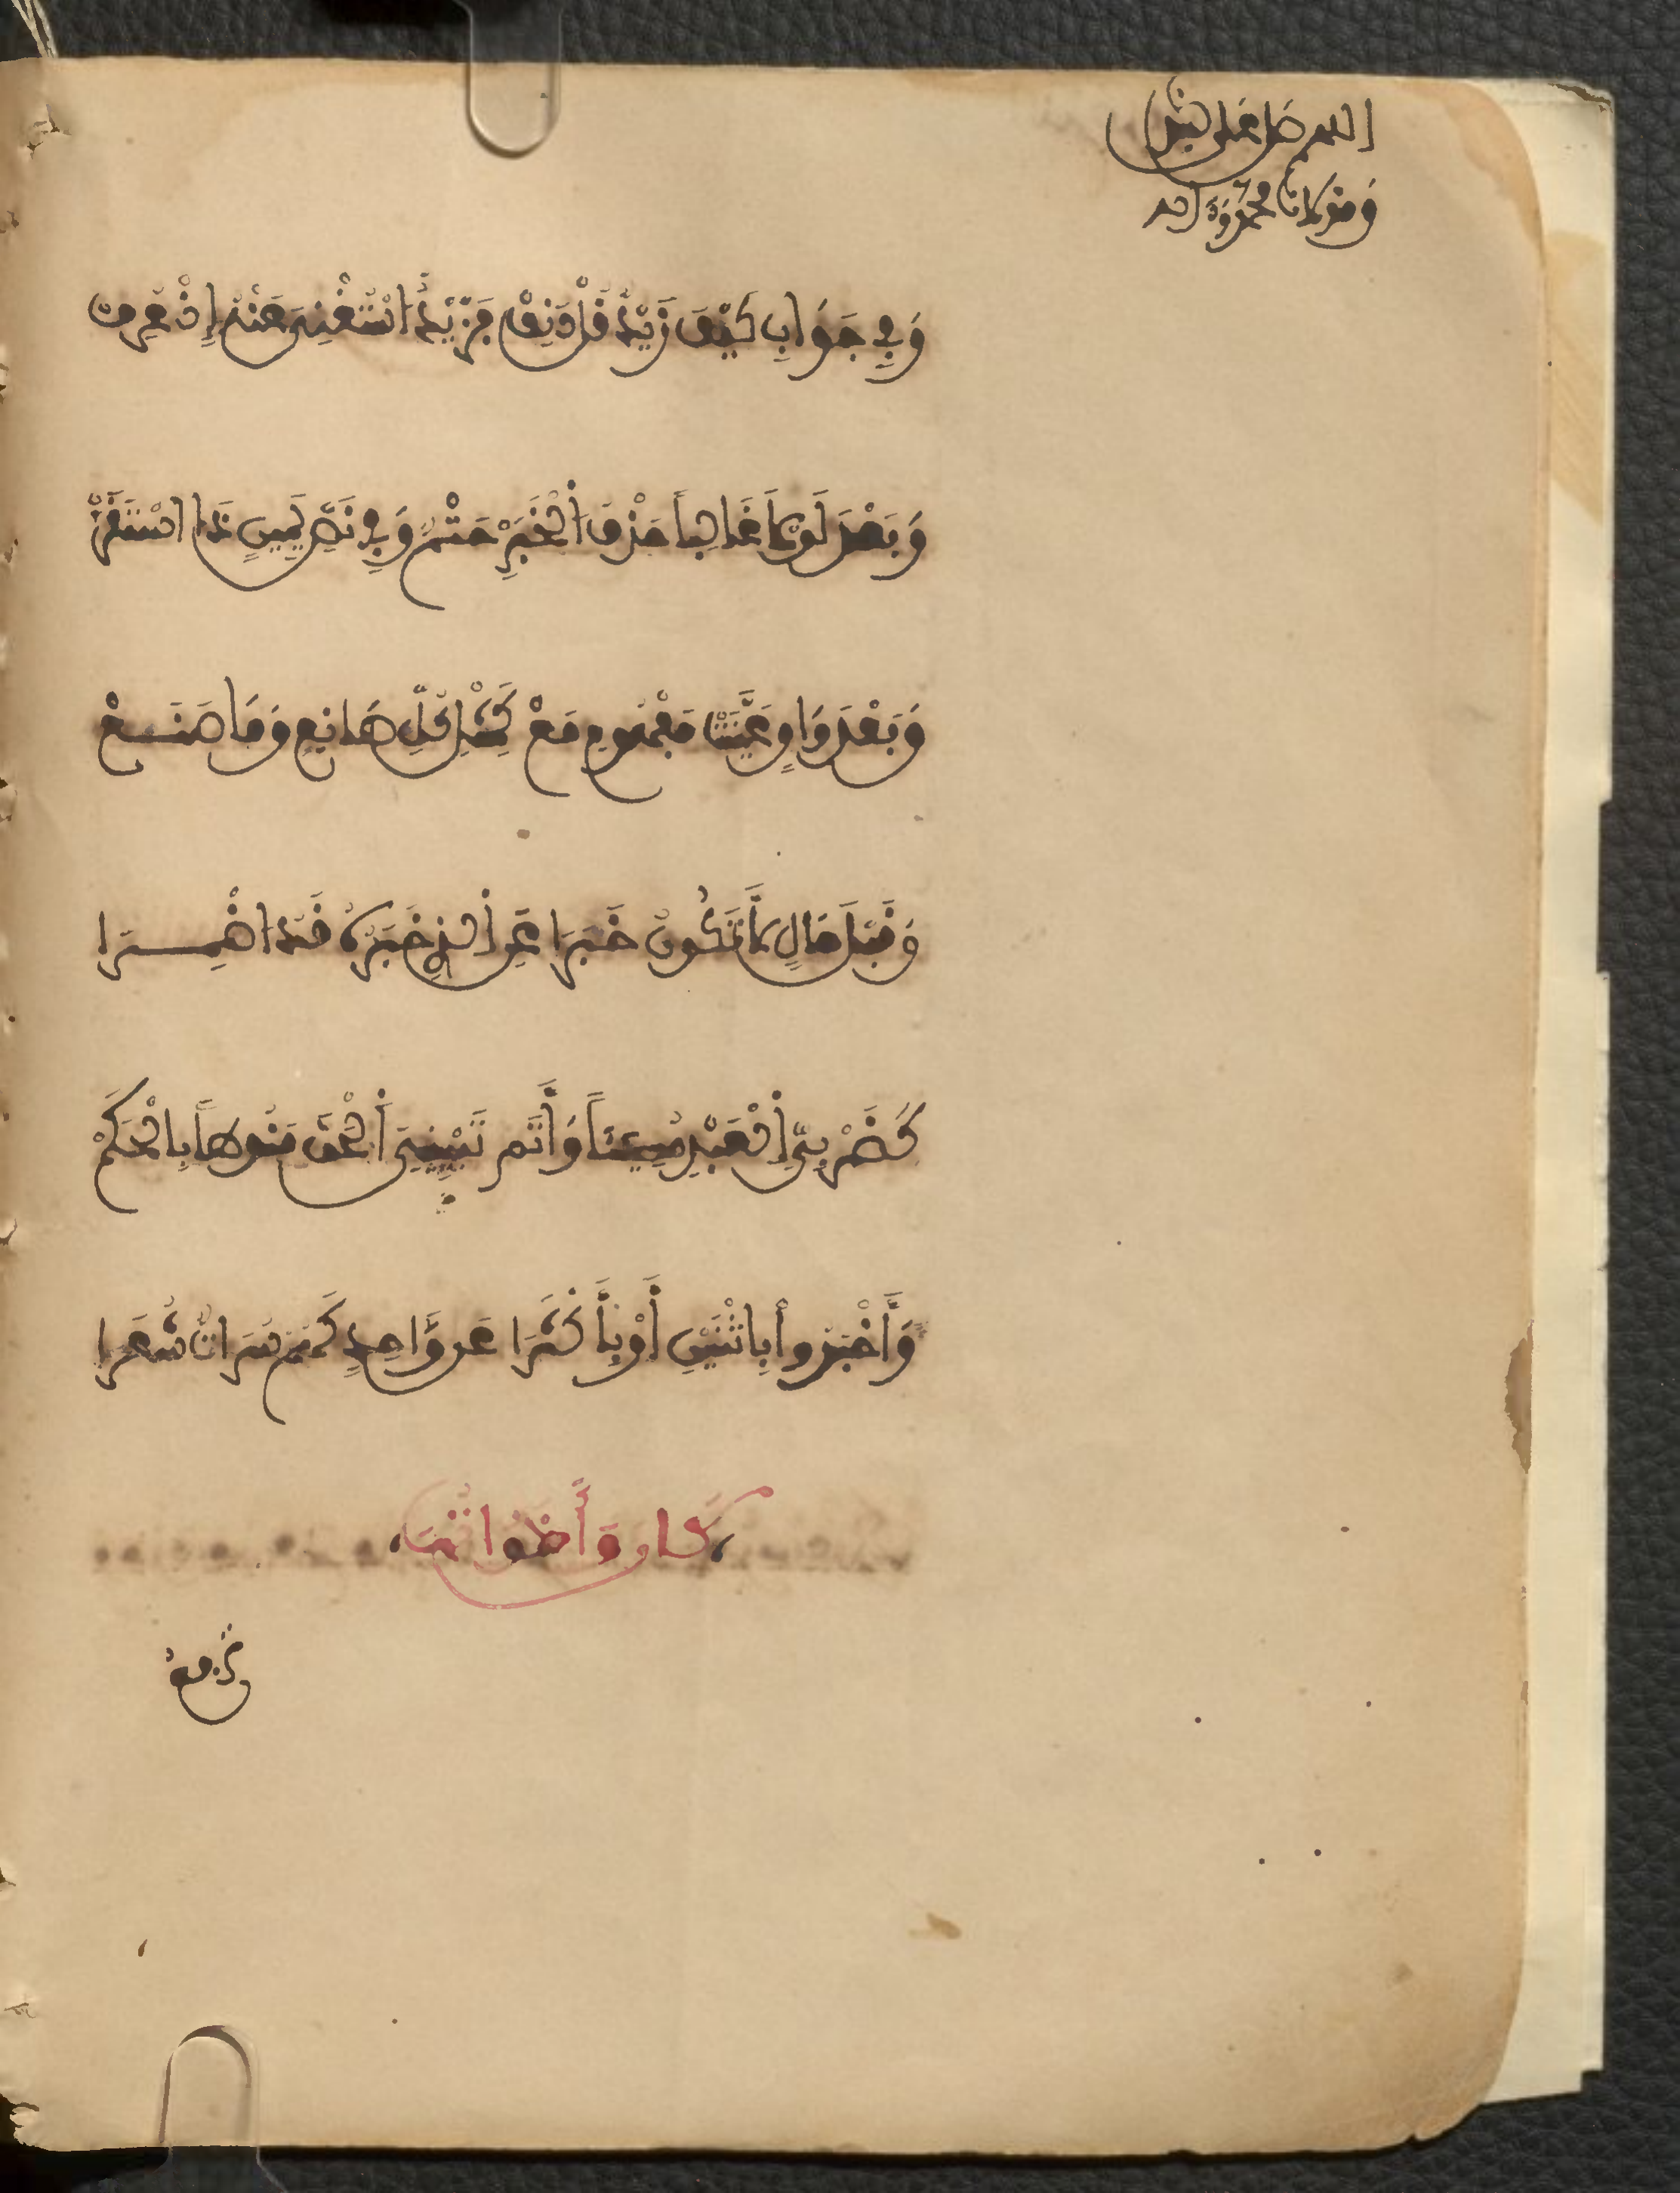 اللهم صل على نبينا
ومولانا محمد وءاله
وَفِي جَوَابِ كَيْفَ زَيْدٌ قُلْ دَنِفْ فَزَيْدٌ اسْتُغْنِيَ عَنْهُ إِذْ عُرِفْ
وَبَعْدَ لَوْلَا غَالِباً حَذْفُ الْخَبَرْ حَتْمٌ وَفِي نَصِّ يَمِينٍ ذَا اسْتَقَرّْ
وَبَعْدَ وَاوٍ عَيَّنَتْ مَفْهُومَ مَعْ كَمِثْلِ كُلُّ صَانِعٍ وَمَا صَنَعْ
وَقَبْلَ حَالٍ لَا تَكُونُ خَبَرَا عَنِ الذِي خَبَرُهُ قَدْ اضْمِرَا
كَضَرْبِيَ الْعَبْدَ مُسِيئاً وَأَتَمّ تَبْيِينِيَ الْحَقَّ مَنُوطاً بِالْحِكَمْ
وَأَخْبَرُوا بِاثْنَيْنِ أَوْ بِأَكْثَرَا عَن وَّاحِدٍ كَهُمْ سَرَاةٌ شُعَرَا
كان وأخواتها
ترفع